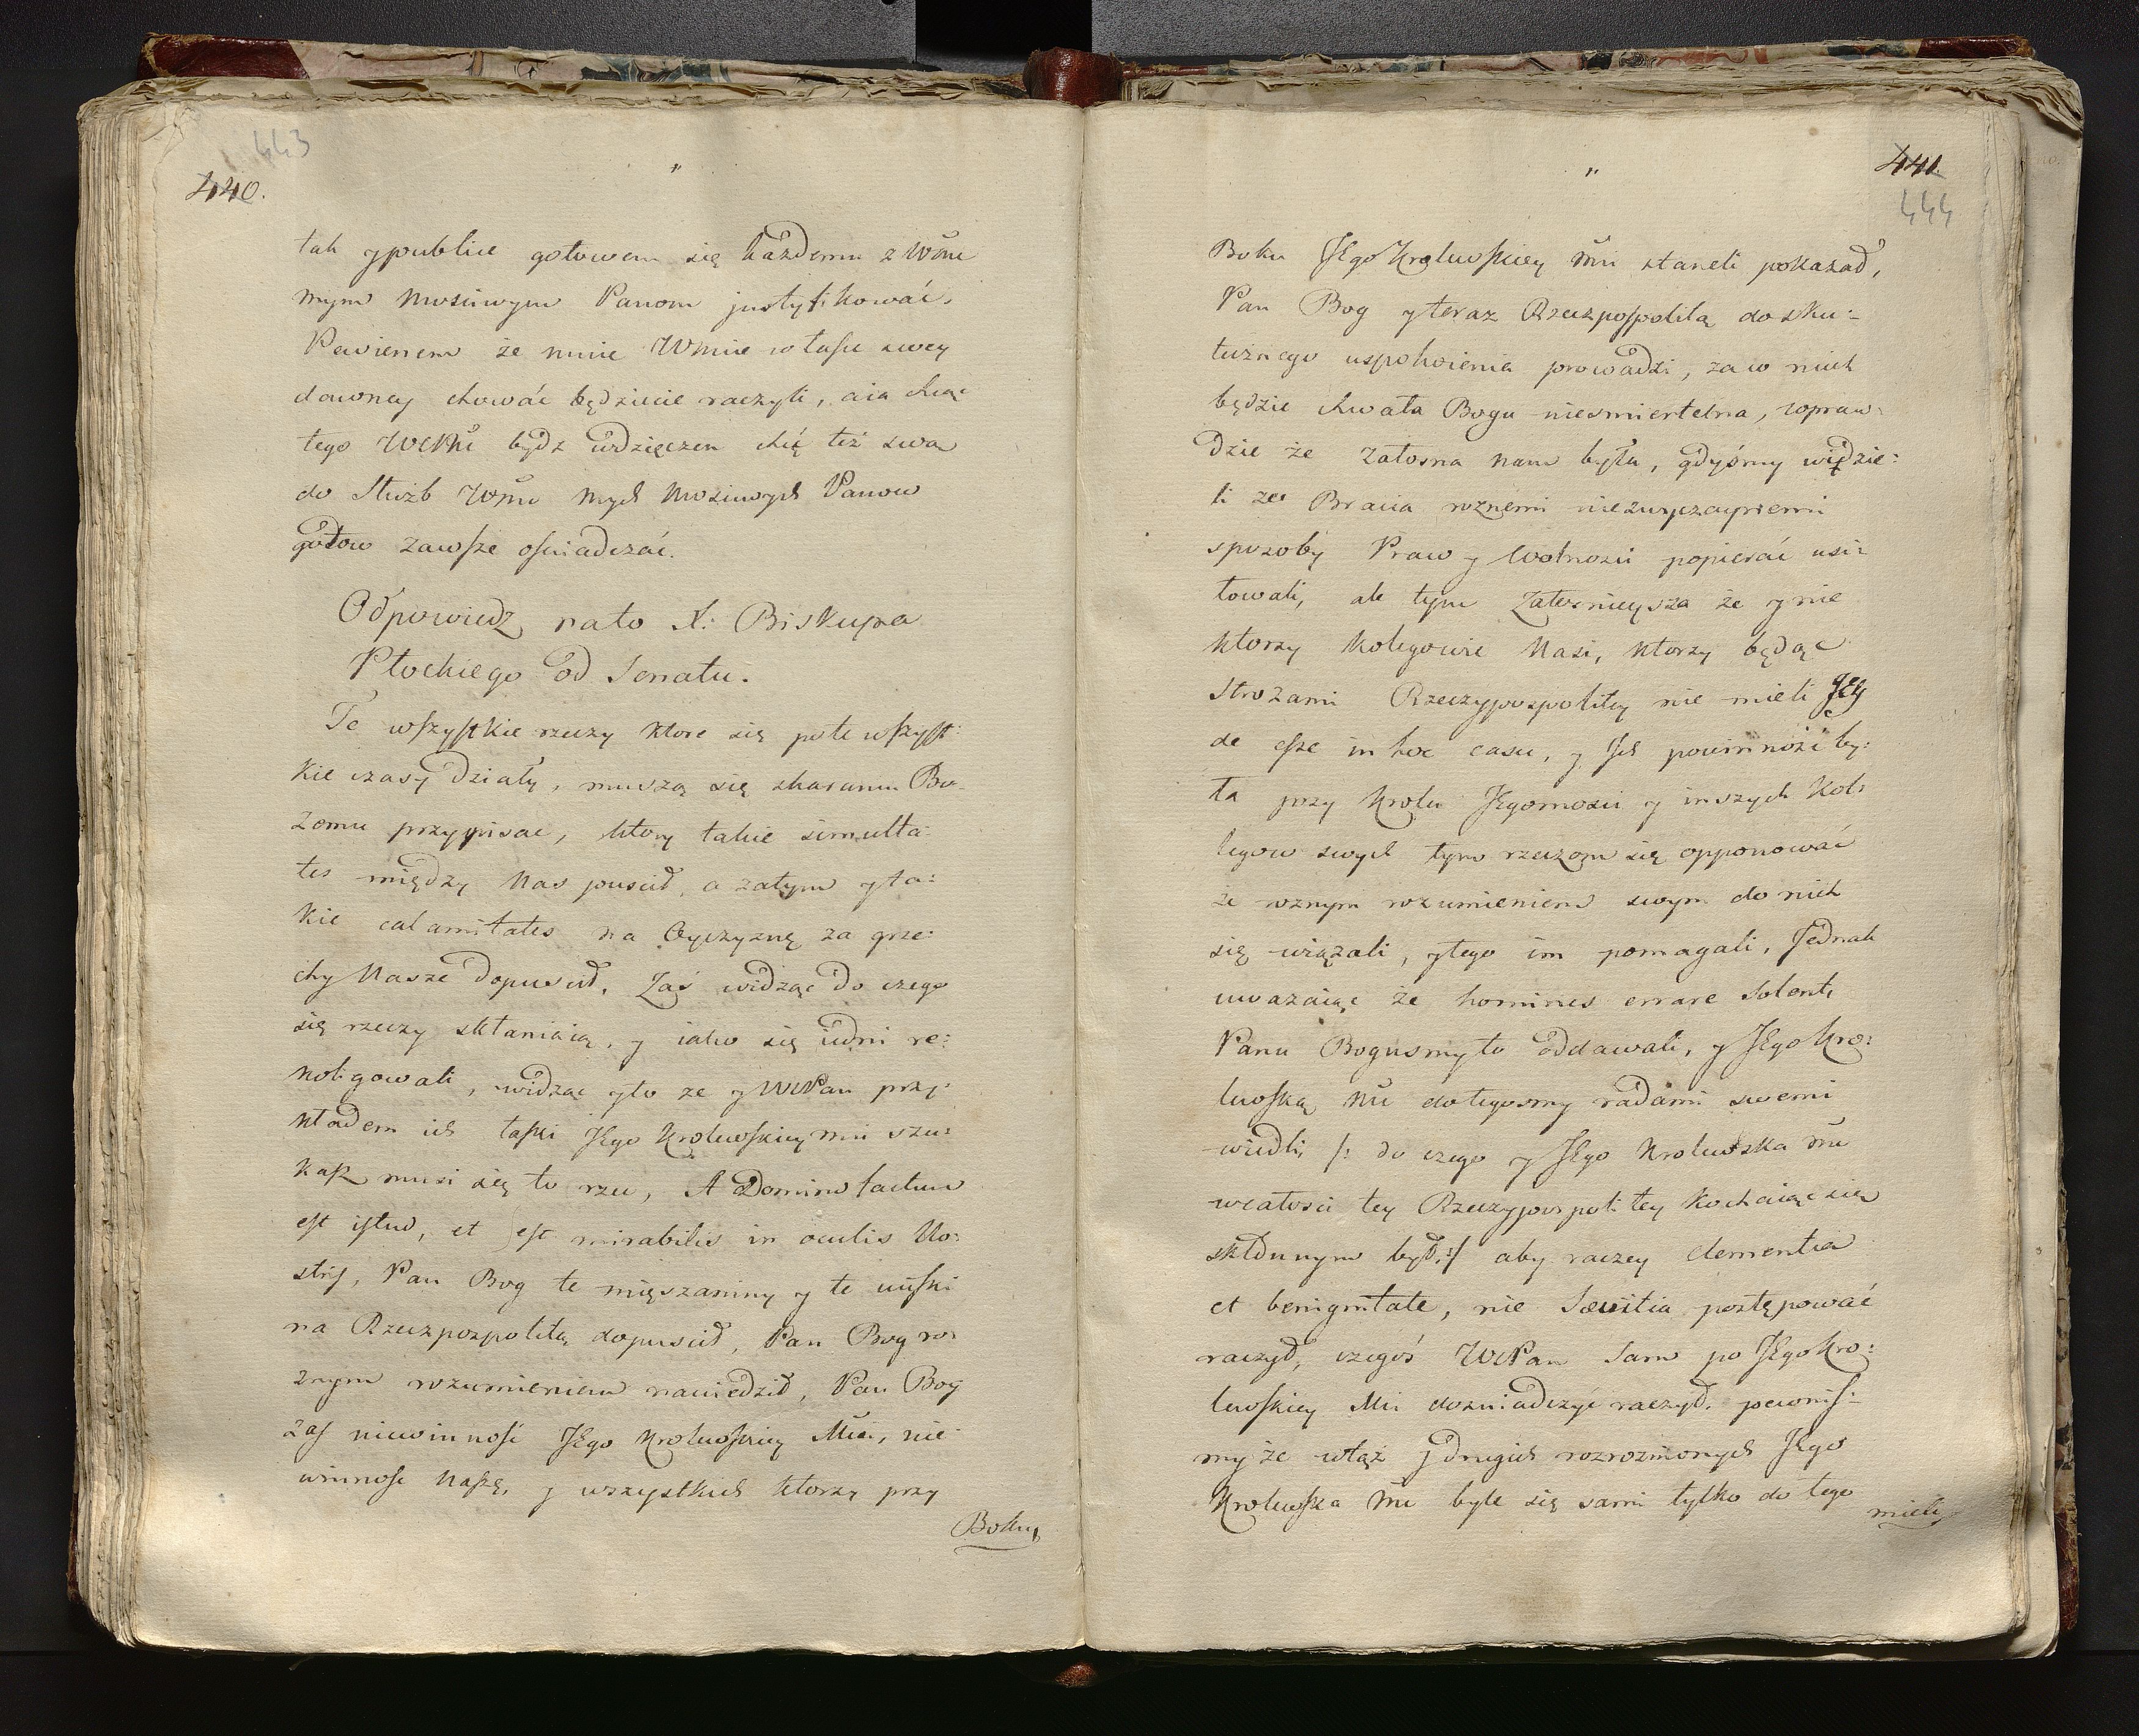 443
440.
"
tak y publice gotowem się każdemu z Wm̃c
mym Mosciwym Panom justyfikować.
Pewienem że mnie Wmcie w łasce swey
dawney chować będziecie raczyli, a ia chcąc
tego WchM̃ bydz wdzięczen chęć też swą
do Służb Wm̃c mych Mosciwych Panow
gotow zawſze oſwiadczać.
Odpowiedz na to X: Biskupa
Płockiego od Senatu.
Te wſzyſtkie rzeczy ktore się pote wſzyſt:
kie czasy działy, muszą się skaraniu Bo-
zemu przypisac, ktory takie simulta:
tes między Nas puscił, a zatym y ta:
kie calamitates na Oyczyznę za grze:
chy Nasze dopuscił. Zaś widząc do czego
się rzeczy skłaniaią, y iako się iedni re:
koligowali, widząc y to ze y WcPan przy:
kładem ich łaſki JEgo Krolewſkiey mci szu:
kaſz musi się to rzec, A Domino factum
eſt iſtud, et eſt mirabile in oculis No:
stris, Pan Bog te mięszaniny y te uciſki
na Rzeczpospolitą dopuscił, Pan Bog ro:
znym rozumieniem nawiedził, Pan Bog
zaſ niewinnoſć JEgo Krolewſkiey Mci, nie
winnoſc Naſzę, y wszystkich ktorzy przy
Boku
"
441.
444
Boku JEgo Krolewſkiey M̃ci staneli pokazał,
Pan Bog y teraz Rzeczpoſpolitą do sku:
tecznego uspokoienia prowadzi, za co niech
będzie chwała Bogu niesmiertelna, wpraw:
dzie że Załosna nam była, gdyśmy widzie:
li ze Bracia roznemi niezwyczaynemi
sposoby Praw y Wolnosci popierać usi:
łowali, ale tym Załosnieysza że y nie
ktorzy Kolegowie Nasi, ktorzy będąc
Strozami Rzeczypospolitey nie mieli
de eſse in hoc casu, y Ich powinność by:
ła przy Krolu JEgomosci y inszych Kol:
legow swych tym rzeczom się opponować
że roznym rozumieniem swym do nich
się wiązali, y tego im pomagali, Jednak
uwazaiąc że homines errare Solent
Panu Bogusmy to oddawali, y JEgo Kro:
lewſką Mc̃ do tegosmy radami swemi
wiedli /: do czego y JEgo Krolewska Mc̃
w całosci tey Rzeczypospolitey Kochaiąc się
skłonnym był :/ aby raczey clementia
et benignitate, nie Sævitia postępować
raczył, czegoś WcPan Sam po JEgo Kro:
lewſkiey Mci dozniadczyć raczył. pewniſ:
my że wtąż y drugich rozroznionych JEgo
Krolewſka Mc̃ byle się sami tylko do tego
mieli